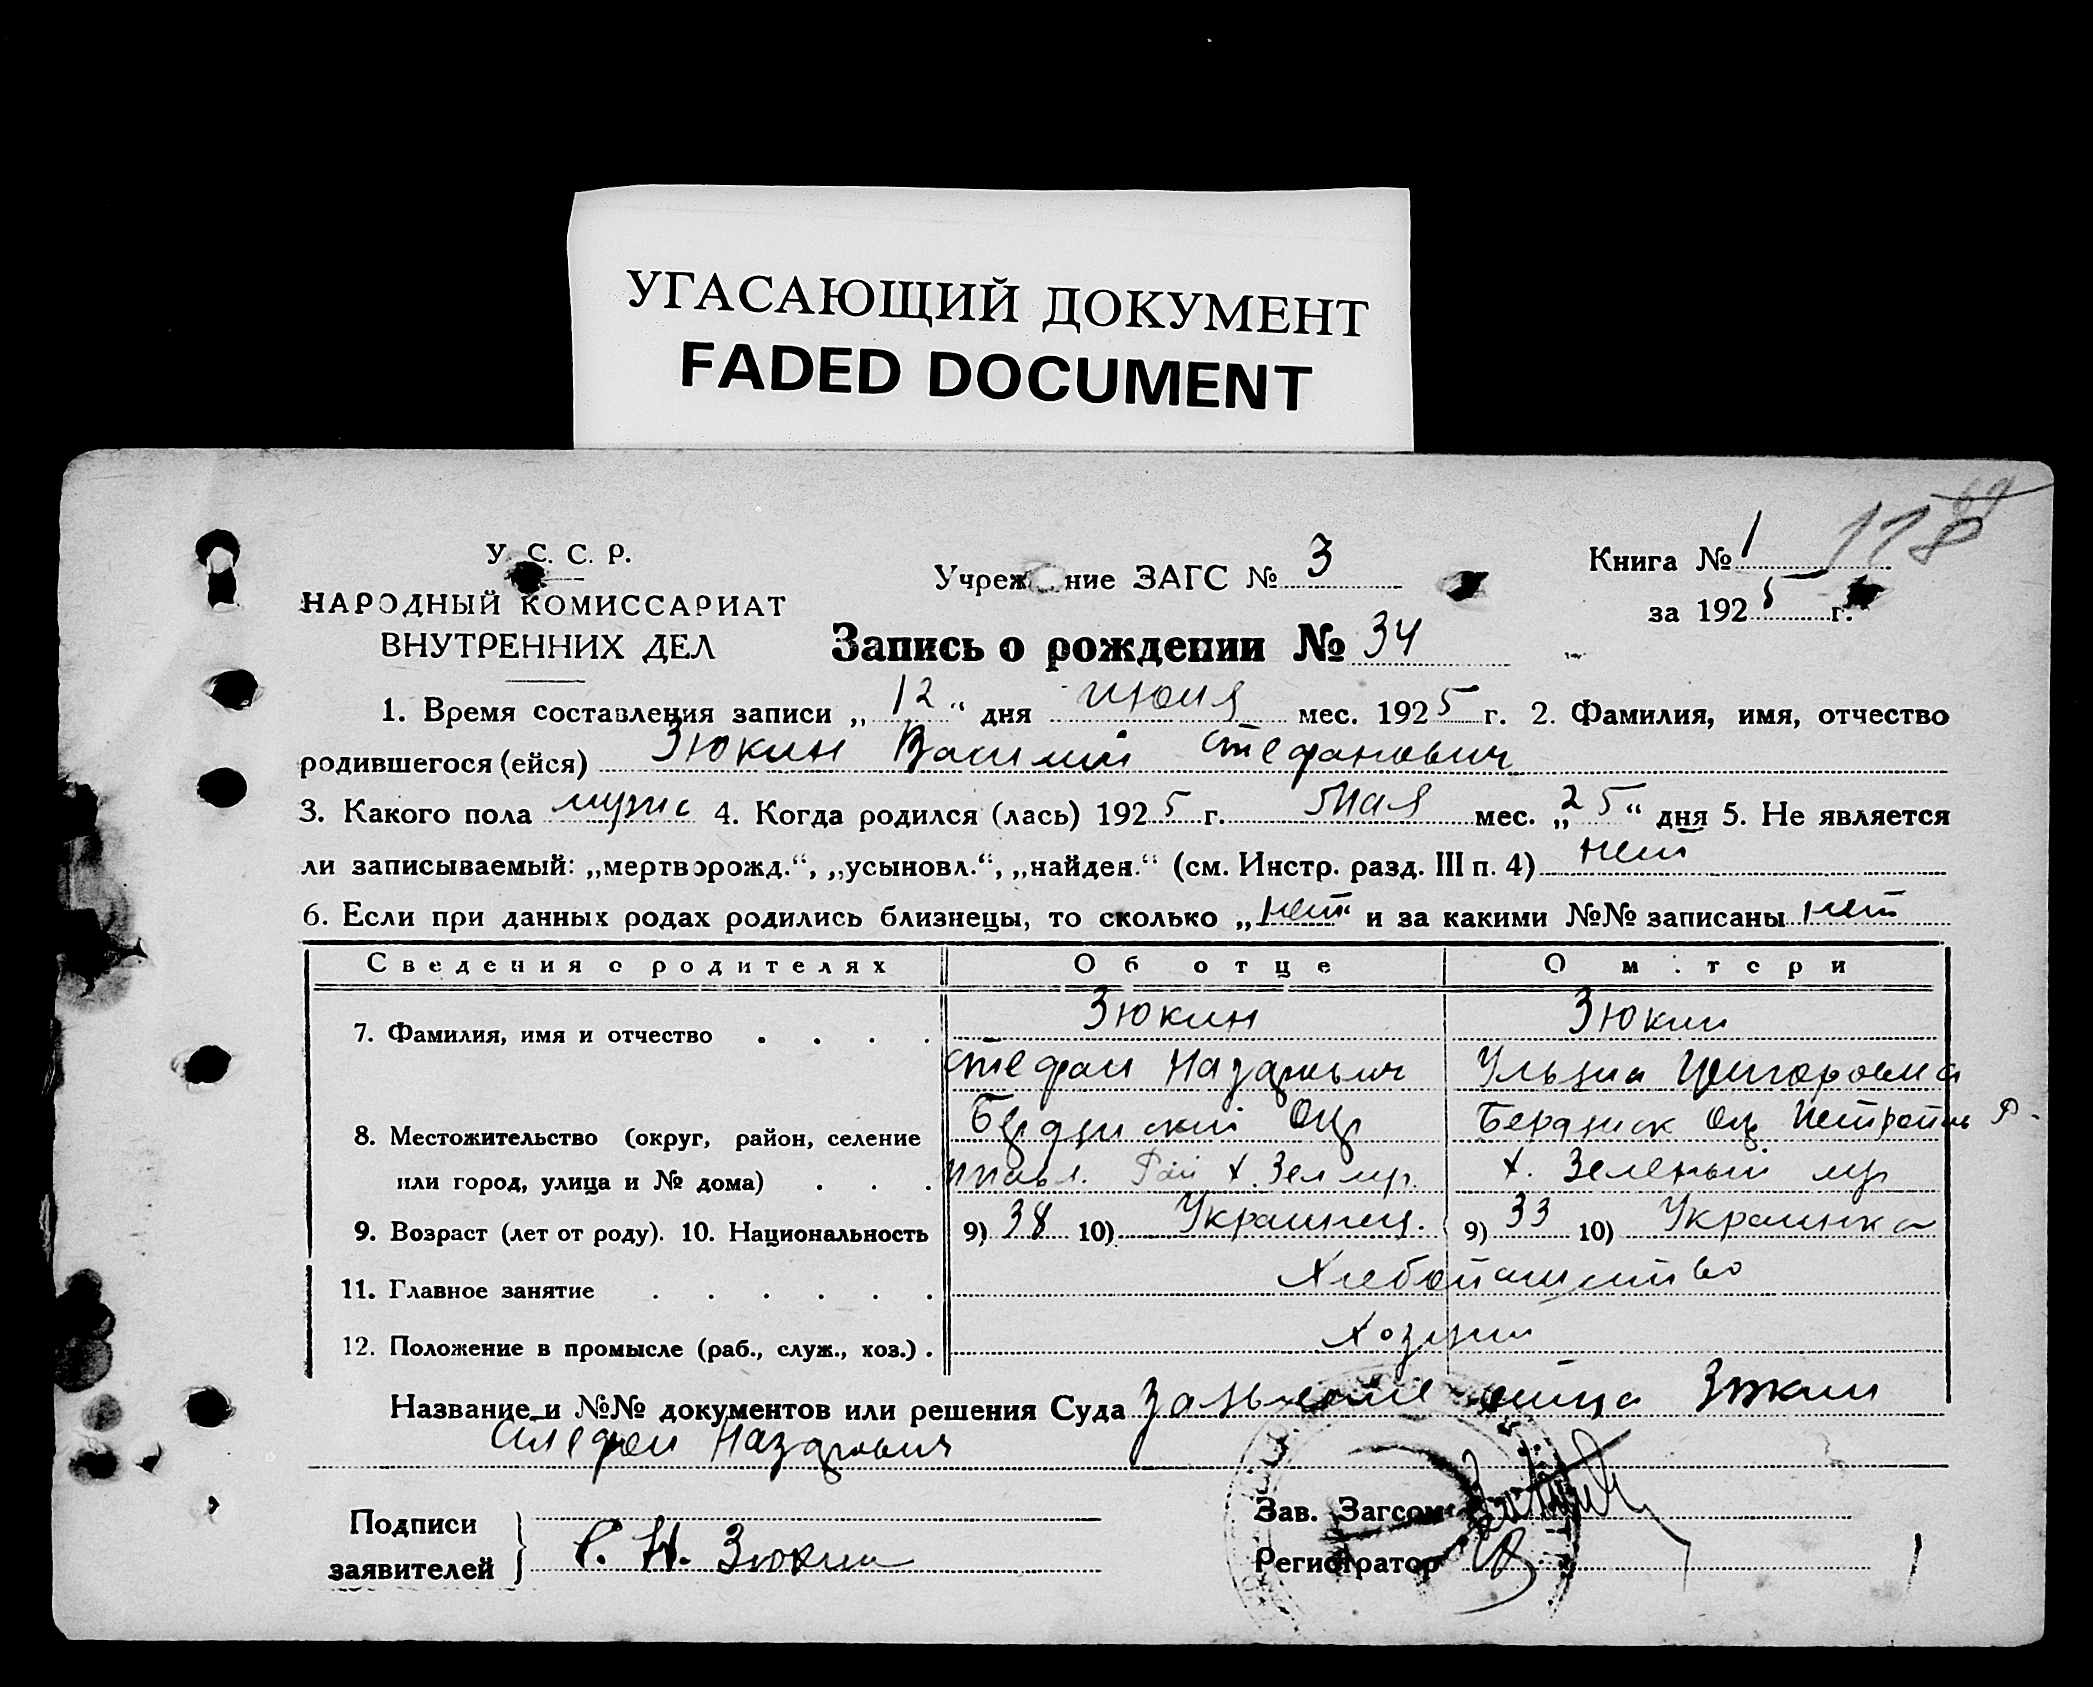 УГАСАЮЩИЙ ДОКУМЕНТ
FADED DOCUMENT
У. С. С. Р.
НАРОДНЫЙ КОМИССАРИАТ
ВНУТРЕННИХ ДЕЛ
Учреж ние ЗАГС № 3
Книга № 1 118
за 1925 г.
Запись о рождении № 34
1. Время составления записи „12“ дня июня мес. 1925 г. 2. Фамилия, имя, отчество
родившегося (ейся) Зюкин Василий Стефанович
3. Какого пола мужс 4. Когда родился (лась) 1925 г. Мая мес. „25“ дня 5. Не является
ли записываемый: „мертворожд.“, „усыновл.“, „найден.“ (см. Инстр. разд. III п. 4) нет
6. Если при данных родах родились близнецы, то сколько „нет“ и за какими №№ записаны нет
Сведения о родителях Об отце О м тери
7. Фамилия, имя и отчество . . . . Зюкин Зюкин
Стефан Назарович Ульяна Григоровна
8. Местожительство (округ, район, селение Бердянский Окр Бердянск Окр
или город, улица и № дома) . . . Рай х. Зел х. Зеленый
9. Возраст (лет от роду). 10. Национальность 9) 38 10) Украинец. 9) 33 10) Украинка
11. Главное занятие . . . . . . Хлебопашество
12. Положение в промысле (раб., служ., хоз.) . Хозяин
Название и №№ документов или решения Суда Заявление отца Зюкин
Стефан Назарович
Подписи
заявителей С. Н. Зюкин
Зав. Загсом
Регистратор